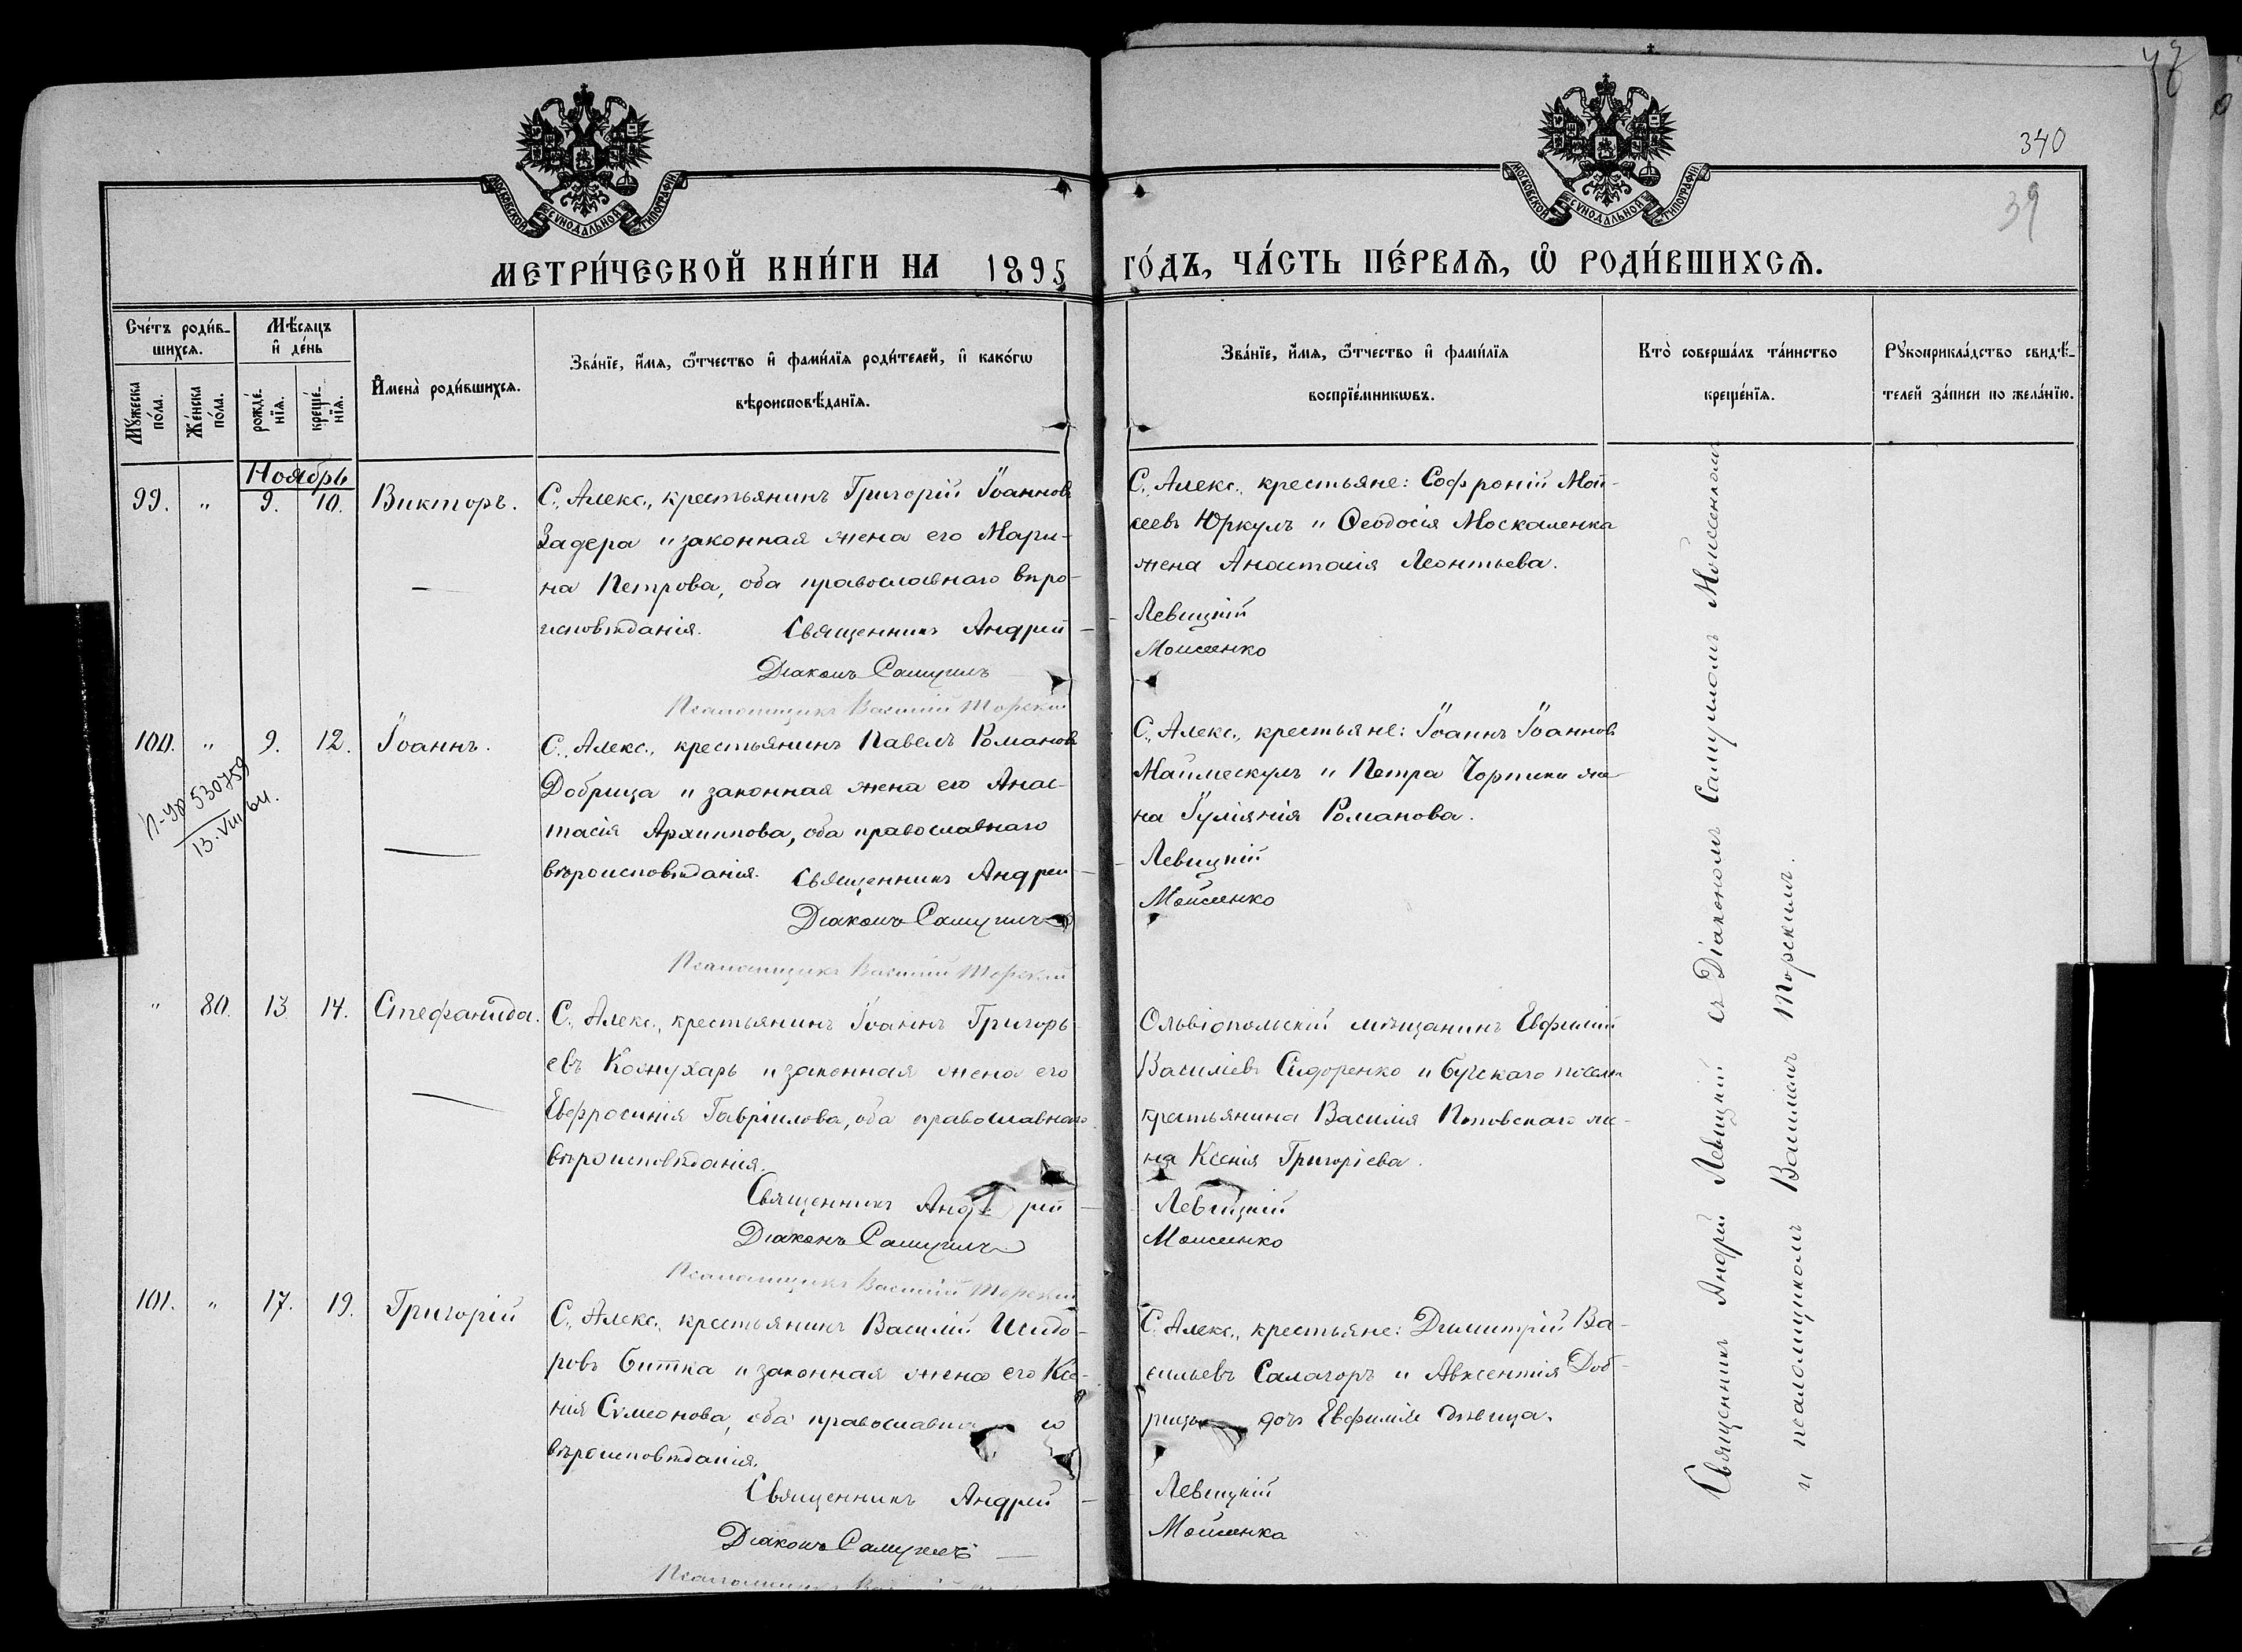 340
39
МОСКОВСКОЙ СѴНОДАЛЬНОЙ ТИПОГРАФІИ
МОСКОВСКОЙ СѴНОДАЛЬНОЙ ТИПОГРАФІИ
МЕТРИ́ЧЕСКОЙ КНИ́ГИ НА 1895 ГО́ДЪ, ЧА́СТЬ ПЕ́РВАѦ, Ѡ҆ РОДИ́ВШИХСѦ.
Сче́тъ роди́в-
шихсѧ.
Мꙋ́жеска
по́ла.
Же́нска
по́ла.
Мѣ́сѧцъ
и҆ де́нь
рожде́-
нїѧ.
креще́-
нїѧ.
И҆мена̀ роди́вшихсѧ.
Зва́нїе, и҆́мѧ, ѻ҆́тчество и҆ фами́лїѧ роди́телей, и҆ како́гѡ
вѣроисповѣ́данїѧ.
Зва́нїе, и҆́мѧ, ѻ҆́тчество и҆ фами́лїѧ
воспрїе́мникѡвъ.
Кто̀ соверша́лъ та́инство
креще́нїѧ.
Рꙋкоприкла́дство свидѣ́-
телей за́писи по жела́нїю.
Ноябрь
99. " 9. 10. Викторъ.
С. Алекс., крестьянинъ Григорій Іоанновъ
Задера и законная жена его Мари-
на Петрова, оба православнаго вѣро-
исповѣданія. Священникъ Андрей -
Діаконъ Самуилъ
Псаломщикъ Василій Торскій
С. Алекс., крестьяне: Софроній Мои-
сеевъ Юркулъ и Ѳеодосія Москаленка
жена Анастасія Леонтьева.
Левицкій
Моисеенко
100. " 9. 12. Іоаннъ.
П-Ур 530759
13.VIII 64.
С. Алекс., крестьянинъ Павелъ Романовъ
Добрица и законная жена его Анас-
тасія Архиппова, оба православнаго
вѣроисповѣданія. Священникъ Андрей -
Діаконъ Самуилъ
Псаломщикъ Василій Торскій
С. Алекс., крестьяне: Іоаннъ Іоанновъ
Маймескулъ и Петра Чортики же-
на Іуліанія Романова.
Левицкій
Моисеенко
" 80. 13 14. Стефанида.
С. Алекс., крестьянинъ Іоаннъ Григорь-
евъ Кожухарь и законная жена его
Евфросинія Гавріилова, оба православнаго
вѣроисповѣданія.
Священникъ Андрей -
Діаконъ Самуилъ
Псаломщикъ Василій Торскій
Ольвіопольскій мѣщанинъ Евфимій
Василіевъ Сидоренко и бугскаго посел.
крестьянина Василія Поповскаго же-
на Ксенія Григоріева.
Левицкій
Моисеенко
101. " 17. 19. Григорій
С. Алекс., крестьянинъ Василій Исидо-
ровъ Битка и законная жена его Ксе-
нія Симеонова, оба православнаго
вѣроисповѣданія.
Священникъ Андрей -
Діаконъ Самуилъ
Псаломщикъ
С. Алекс., крестьяне: Димитрій Ва-
сильевъ Салагоръ и Авксентія Доб-
рицы дочь Евфимія дѣвица.
Левицкій
Моисеенко
Священникъ Андрей Левицкій съ Діакономъ Самуиломъ Моисеенкомъ
и псаломщикомъ Василіемъ Торскимъ.